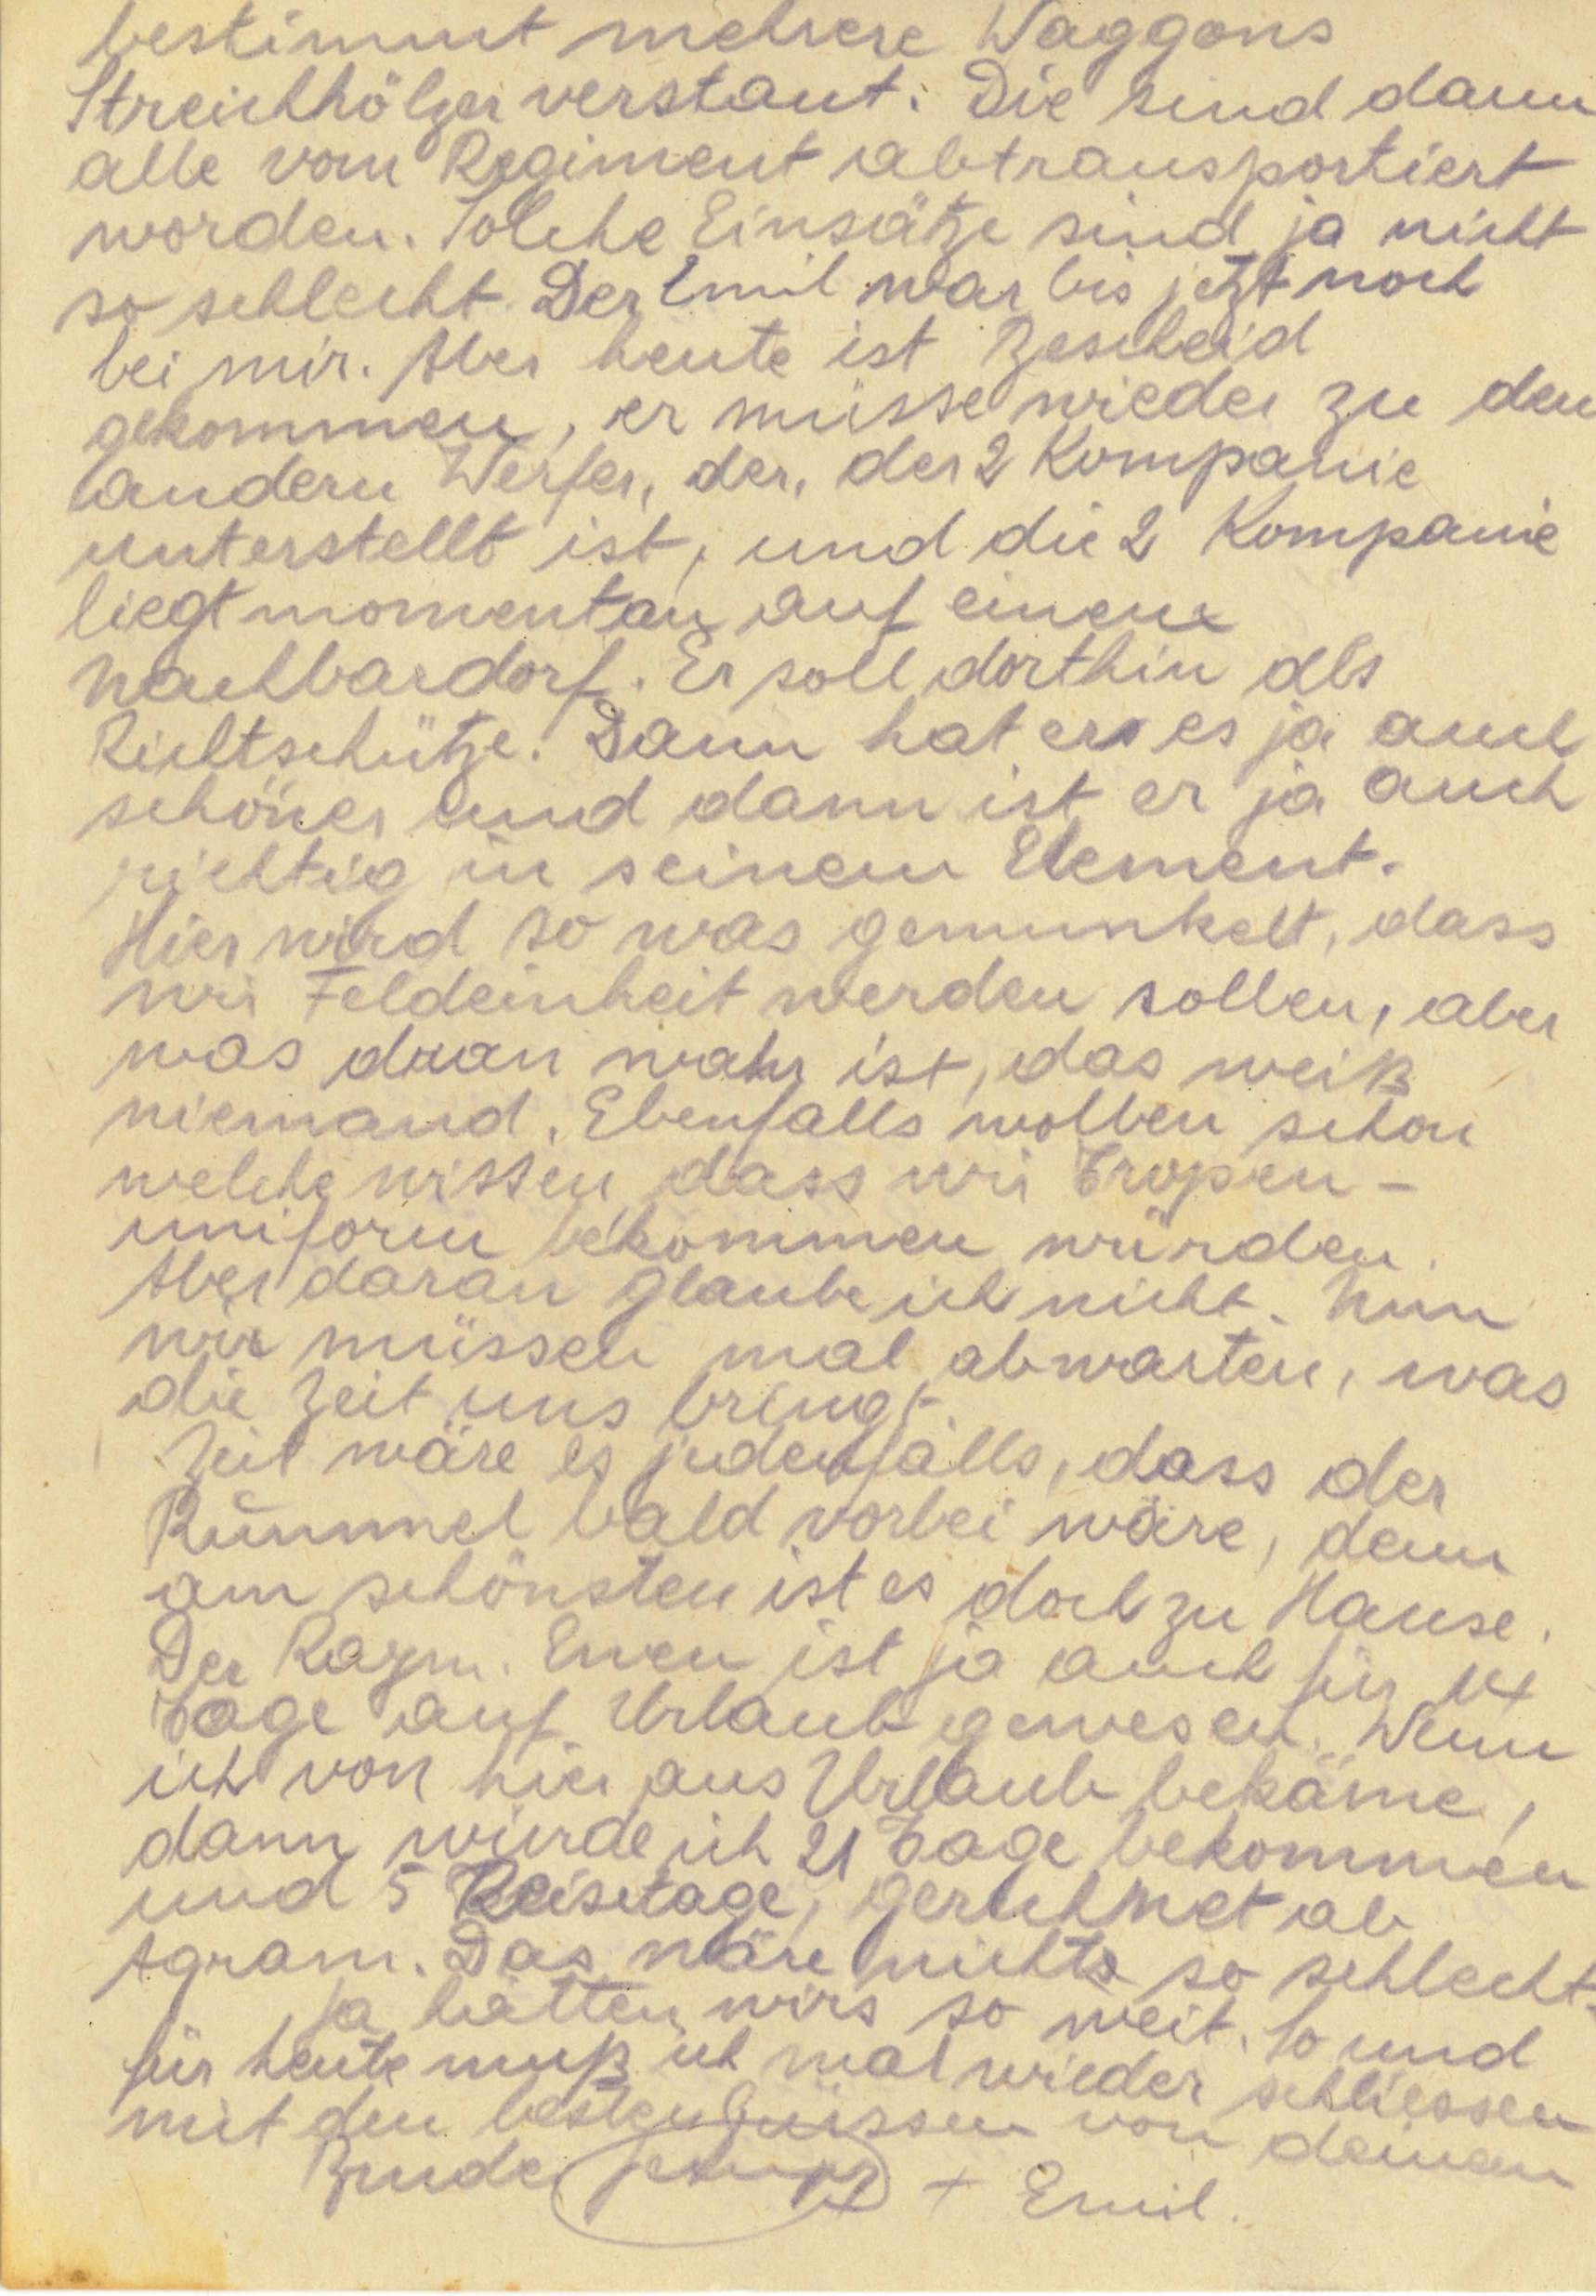 bestimmt mehrere Waggons
Streichhölzer verstaut. Die sind dann
alle vom Regiment abtransportiert
worden. Solche Einsätze sind ja nicht
so schlecht. Der Emil war bis jetzt noch
bei mir. Aber heute ist Bescheid
gekommen, er müsse wieder zu den
andern Werfer, der, der 2 Kompanie
unterstellt ist, und die 2 Kompanie
liegt momentan auf einem
Nachbardorf. Er soll dorthin als
Richtschütze. Dann hat er es ja auch
schöner und dann ist er ja auch
richtig in seinem Element.
Hier wird so was gemunkelt, dass
wir Feldeinheit werden sollen, aber
was dran wahr ist, das weiß
niemand. Ebenfalls wollen schon
welche wissen dass wir Tropen-
uniform bekommen würden.
Aber daran glaube ich nicht. Nun
wir müssen mal abwarten, was
die Zeit uns bringt.
Zeit wäre es jedenfalls, dass der
Rummel bald vorbei wäre, denn
am schönsten ist es doch zu Hause.
Der Razm. Ewen ist ja auch für 14
Tage auf Urlaub gewesen. Wenn
ich von hier aus Urlaub bekäme,
dann würde ich 21 Tage bekommen
und 5 Reisetage, gerechnet ab
Agram. Das wäre nichts so schlecht.
Ja hätten wirs so weit. So und
für heute muß ich mal wieder schliessen
mit den besten Grüssen von deinem
Bruder + Emil.